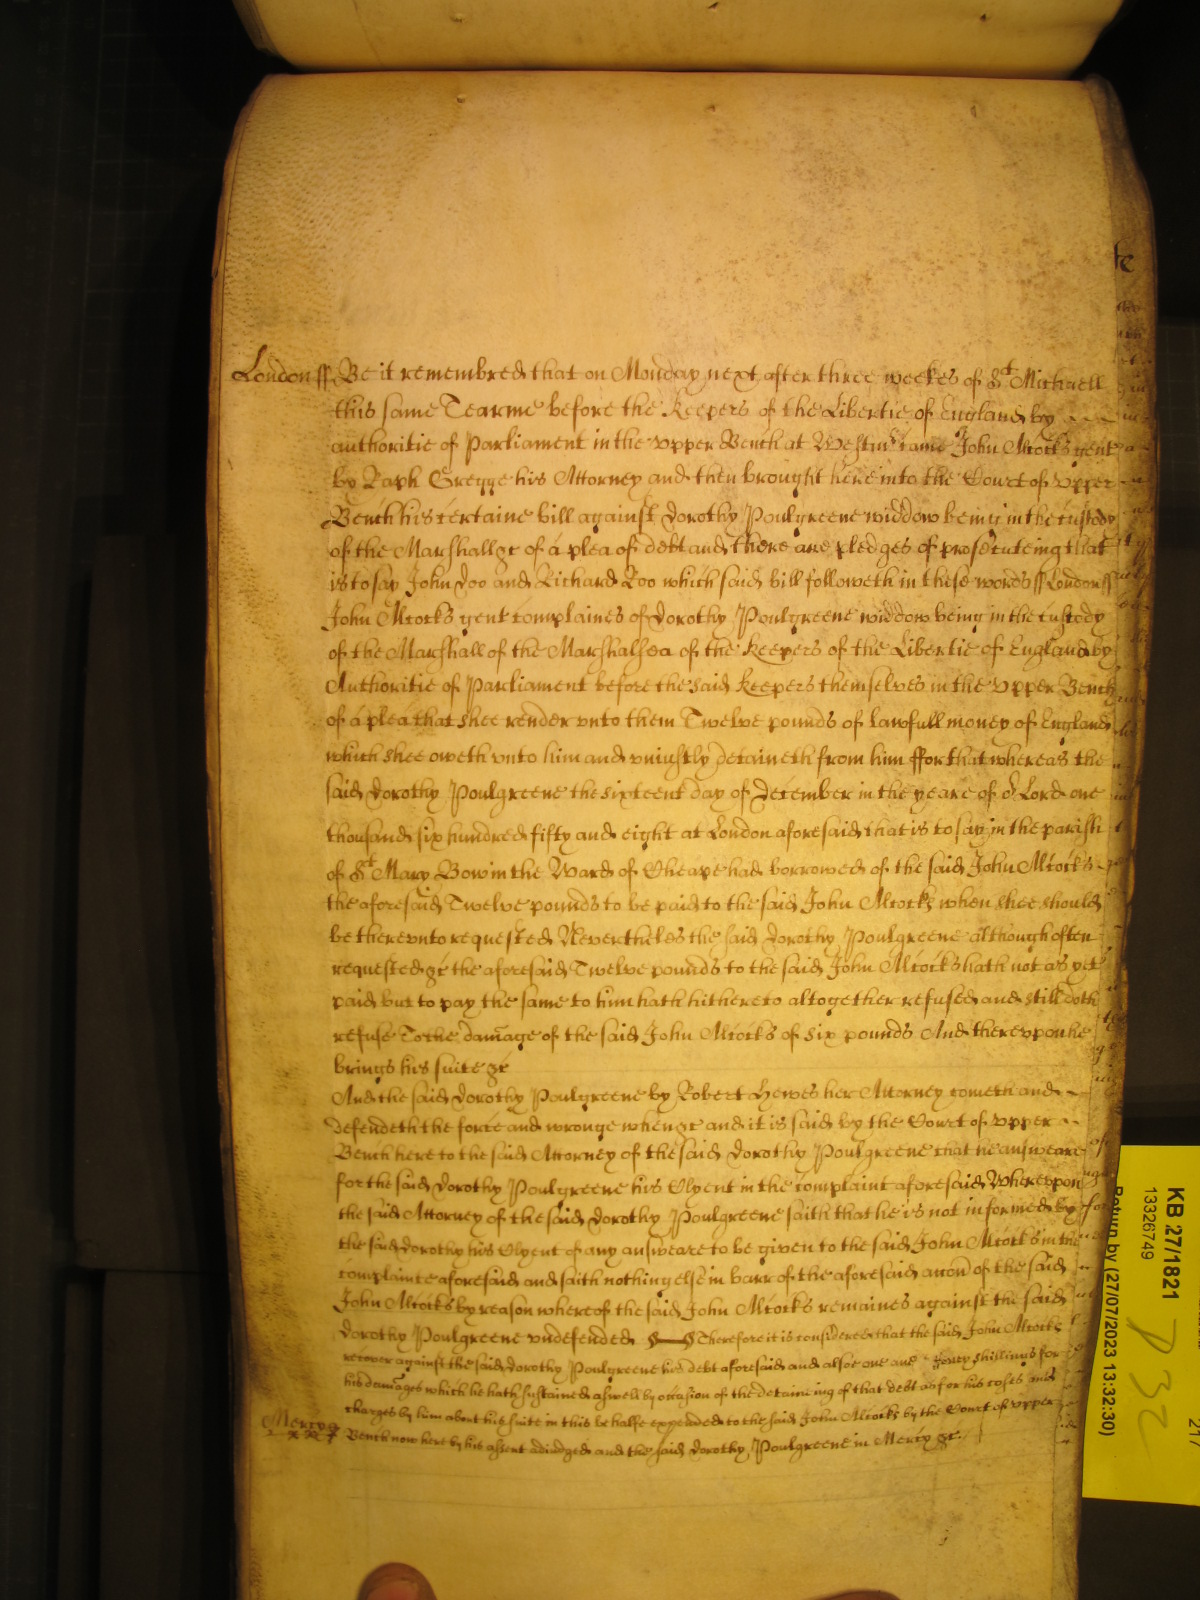 London ss Be it remembred that on Monday next after three weekes of St Michaell
this same Tearme before the Keepers of the Libertie of England by
authoritie of Parliament in the Upper Bench at Westmr came John Alcocks gent
by Raph Gregge his Attorney and then brought here into the Court of Upper
Bench his certaine bill against Dorothy Poulgreene widdow being in the custody
of the Marshall &c of a plea of debt and there are pledges of prosecuteing that
is to say John Doo and Richard Roo which said bill followeth in these words ss London ss
John Alcocks gent complaines of Dorothy Poulgreene widdow being in the custody
of the Marshall of the Marshalsea of the Keepers of the Libertie of England by
Authoritie of Parliament before the said Keepers themselves in the Upper Bench
of a plea that shee render unto them Twelve pounds of lawfull money of England
which shee oweth vnto him and vniustly detaineth from him ffor that whereas the
said Dorothy Poulgreene the sixteent day of December in the yeare of or Lord one
thousand six hundred fifty and eight at London aforesaid that is to say in the parish
of St Mary Bow in the Ward of Cheape had borrowed of the said John Alcocks
the aforesaid Twelve pounds to be paid to the said John Alcocks when shee should
be therevnto requested Nevertheles the said Dorothy Poulgreene although often
requested &c the aforesaid Twelve pounds to the said John Alcocks hath not as yet
paid but to pay the same to him hath hithereto altogether refused and still doth
refuse To the damage of the said John Alcocks of six pounds And therevpon he
brings his suite &c
And the said Dorothy Poulgreene by Robert Hewes her Attorney cometh and
defendeth the force and wronge when &c and it is said by the Court of Upper
Bench here to the said Attorney of the said Dorothy Poulgreene that he answeare
for the said Dorothy Poulgreene his Clyent in the complaint aforesaid Wherevpon
the said Attorney of the said Dorothy Poulgreene saith that he is not informed by
the said Dorothy his Clyent of any answeare to be given to the said John Alcocks in the
complainte aforesaid and saith nothing else in barr of the aforesaid accon of the said
John Alcocks by reason whereof the said John Alcocks remaines against the said
Dorothy Poulgreene vndefended Therefore it is considered that the said John Alcocks
recover against the said Dorothy Poulgreene his debt aforesaid and alsoe one and shillings for
his damages which he hath sustained aswell by occasion of the detaineing of that debt as for his costs and
charges by him about his suite in this behalfe expended to the said John Alcocks by the Court of Upper
Mercy Bench now here by his assent adiudged and the said Dorothy Poulgreene in Mercy &c
KB 27/1821
13326749
Return by (27/07/2023 13:32:30)
217
D 32